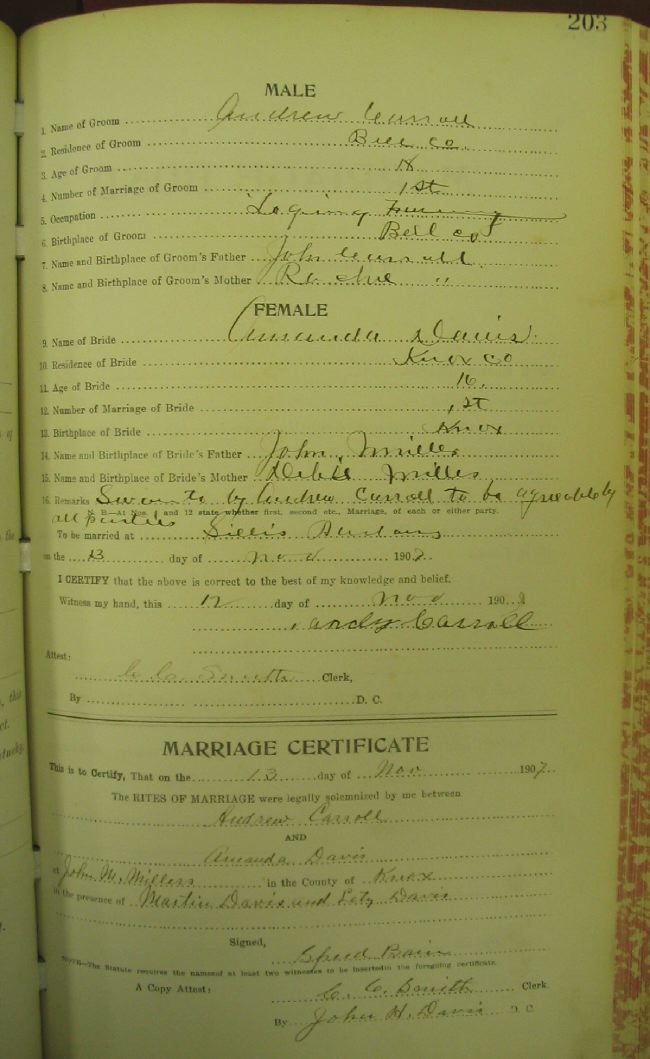 203
MALE
1. Name of Groom Andrew Carroll
2. Residence of Groom Bell co.
3. Age of Groom 18
4. Number of Marriage of Groom 1st
5. Occupation Loging
6. Birthplace of Groom Bell co
7. Name and Birthplace of Groom's Father John Carroll
8. Name and Birthplace of Groom's Mother "
FEMALE
9. Name of Bride Amanda Davis
10. Residence of Bride Knox co
11. Age of Bride 16.
12. Number of Marriage of Bride 1st
13. Birthplace of Bride Knox
14. Name and Birthplace of Bride's Father John Miller
15. Name and Birthplace of Bride's Mother Miller
16. Remarks Sworn to by Andrew Carroll to be agreeable by
N. B.—At Nos. 4 and 12 state whether first, second etc., Marriage, of each or either party.
all parties
To be married at
on the 13 day of Nov 1907.
I CERTIFY that the above is correct to the best of my knowledge and belief.
Witness my hand, this 12 day of Nov 190
Andy Carroll
Attest:
C. C. Smith Clerk,
By D. C.
MARRIAGE CERTIFICATE
This is to Certify, That on the 13 day of Nov 1907.
The RITES OF MARRIAGE were legally solemnized by me between
Andrew Carroll
AND
Amanda Davis
at John M. Millers in the County of Knox
in the presence of Martin Davis and Davis
Signed, Speed Bain
NOTE—The Statute requires the names of at least two witnesses to be inserted in the foregoing certificate.
A Copy Attest: C. C. Smith Clerk
By John H. Davis D. C.